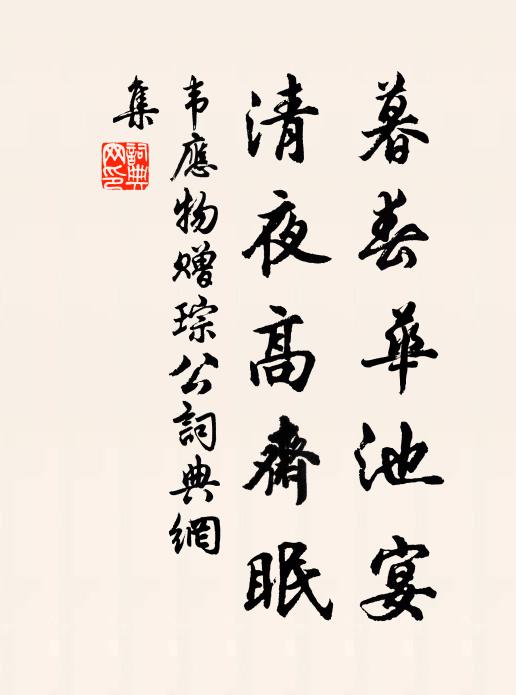 暮春華池宴
清夜高齋眠
韦應物赠琮公詞典網
集
詞典
网印